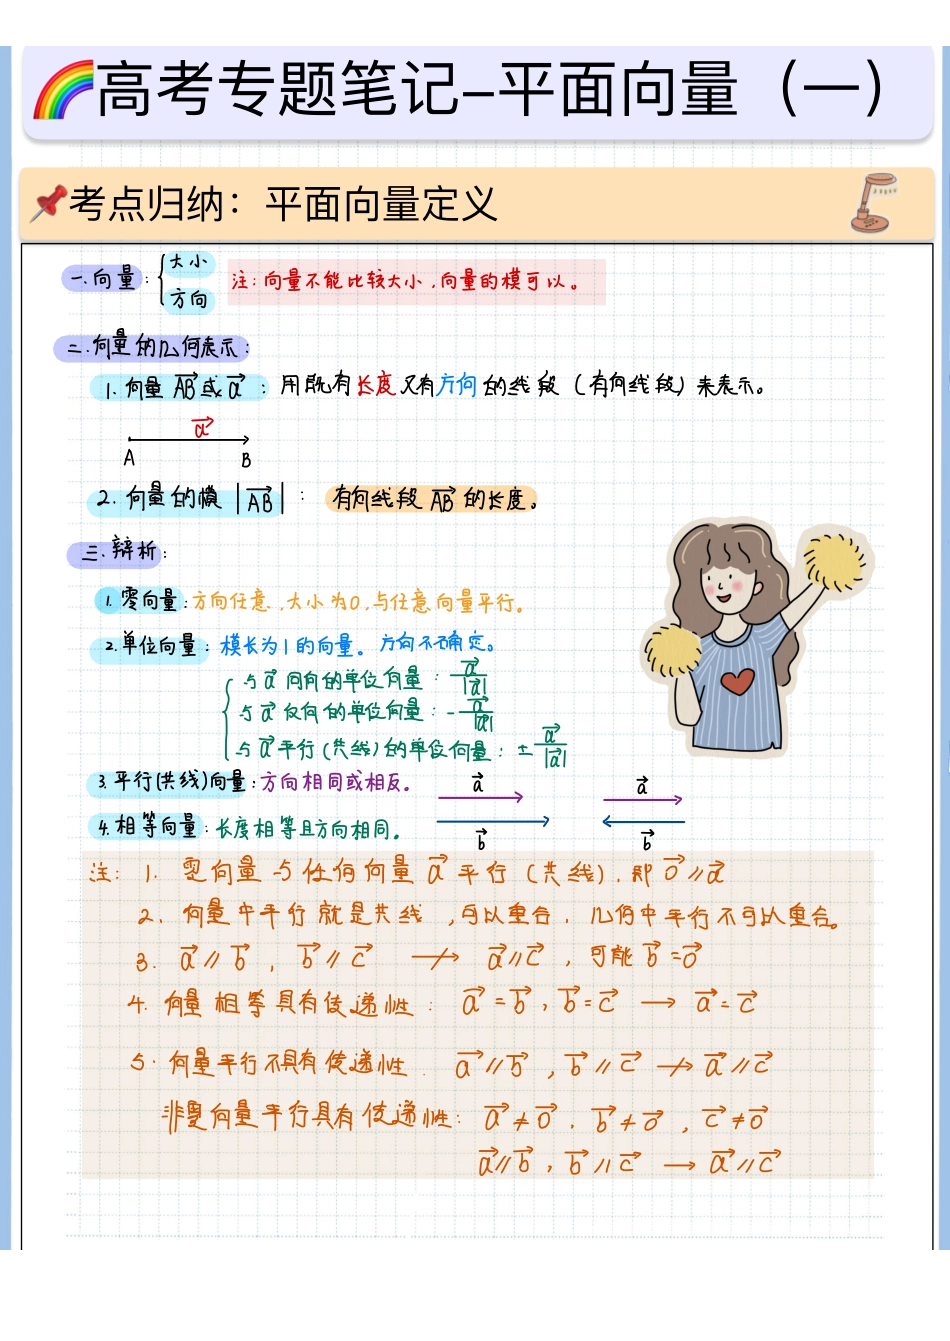 高考专题笔记–平面向量（一）
考点归纳：平面向量定义
一.向量：{大小
方向
注：向量不能比较大小，向量的模可以。
二.向量的几何表示：
1.向量 $\overrightarrow{AB}$ 或 $\vec{a}$ ：用既有长度又有方向的线段（有向线段）来表示。
$\vec{a}$
A B
2.向量的模 $|\overrightarrow{AB}|$ ：有向线段 $\overrightarrow{AB}$ 的长度。
三.辩析：
1.零向量：方向任意，大小为0，与任意向量平行。
2.单位向量：模长为1的向量。方向不确定。
与 $\vec{a}$ 同向的单位向量：$\frac{\vec{a}}{|\vec{a}|}$
与 $\vec{a}$ 反向的单位向量：$-\frac{\vec{a}}{|\vec{a}|}$
与 $\vec{a}$ 平行（共线）的单位向量：$\pm\frac{\vec{a}}{|\vec{a}|}$
3.平行(共线)向量：方向相同或相反。 $\vec{a}$ $\vec{a}$
4.相等向量：长度相等且方向相同。 $\vec{b}$ $\vec{b}$
注：1. 零向量与任何向量 $\vec{a}$ 平行（共线），即 $\vec{0}$ // $\vec{a}$
2. 向量中平行就是共线，可以重合，几何中平行不可以重合。
3. $\vec{a}$ // $\vec{b}$，$\vec{b}$ // $\vec{c}$ ↛ $\vec{a}$ // $\vec{c}$，可能 $\vec{b}$ = $\vec{0}$
4. 向量相等具有传递性：$\vec{a}$ = $\vec{b}$，$\vec{b}$ = $\vec{c}$ → $\vec{a}$ = $\vec{c}$
5. 向量平行不具有传递性. $\vec{a}$ // $\vec{b}$，$\vec{b}$ // $\vec{c}$ ↛ $\vec{a}$ // $\vec{c}$
非零向量平行具有传递性：$\vec{a}$ ≠ $\vec{0}$，$\vec{b}$ ≠ $\vec{0}$，$\vec{c}$ ≠ $\vec{0}$
$\vec{a}$ // $\vec{b}$，$\vec{b}$ // $\vec{c}$ → $\vec{a}$ // $\vec{c}$